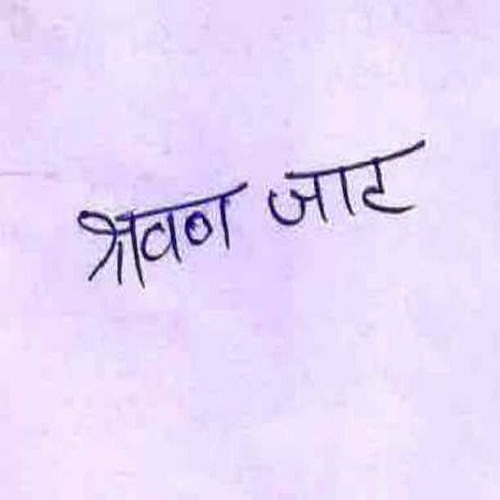 श्रवण जाट